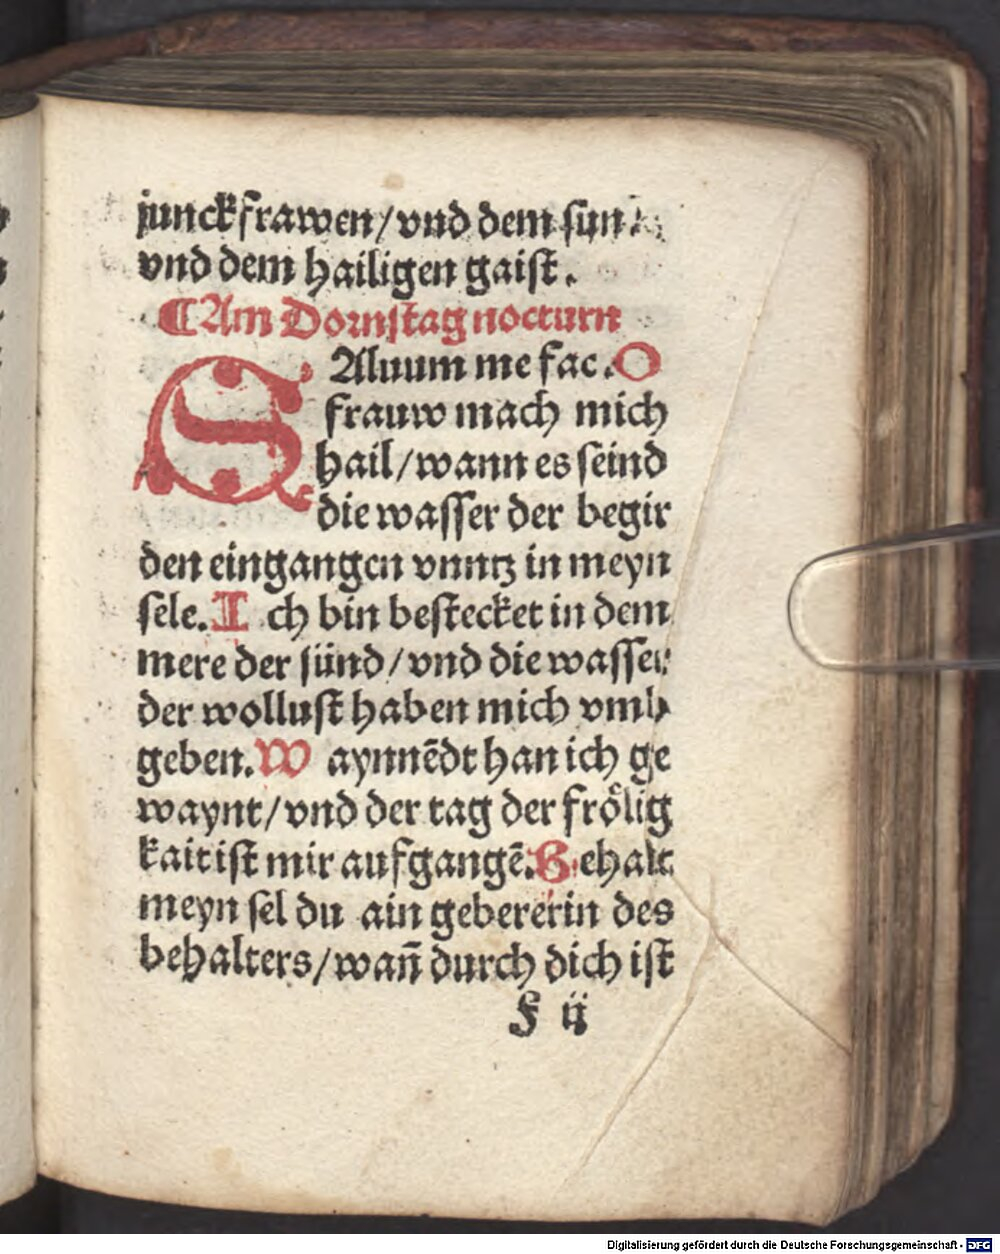 junckfrawen/vnd dem sun
vnd dem hailigen gaist.
¶Am Dornstag nocturn
SAluum me fac. O
frauw mach mich
hail/wann es seind
die wasser der begir
den eingangen vnntz in meyn
sele. Ich bin bestecket in dem
mere der sünd/vnd die wasser
der wollust haben mich vmb
geben. Waynnēdt han ich ge
waynt/vnd der tag der frölig
kait ist mir aufgangē. Gehalt
meyn sel du ain gebererin des
behalters/wañ durch dich ist
f ij
Digitalisierung gefördert durch die Deutsche Forschungsgemeinschaft - DFG